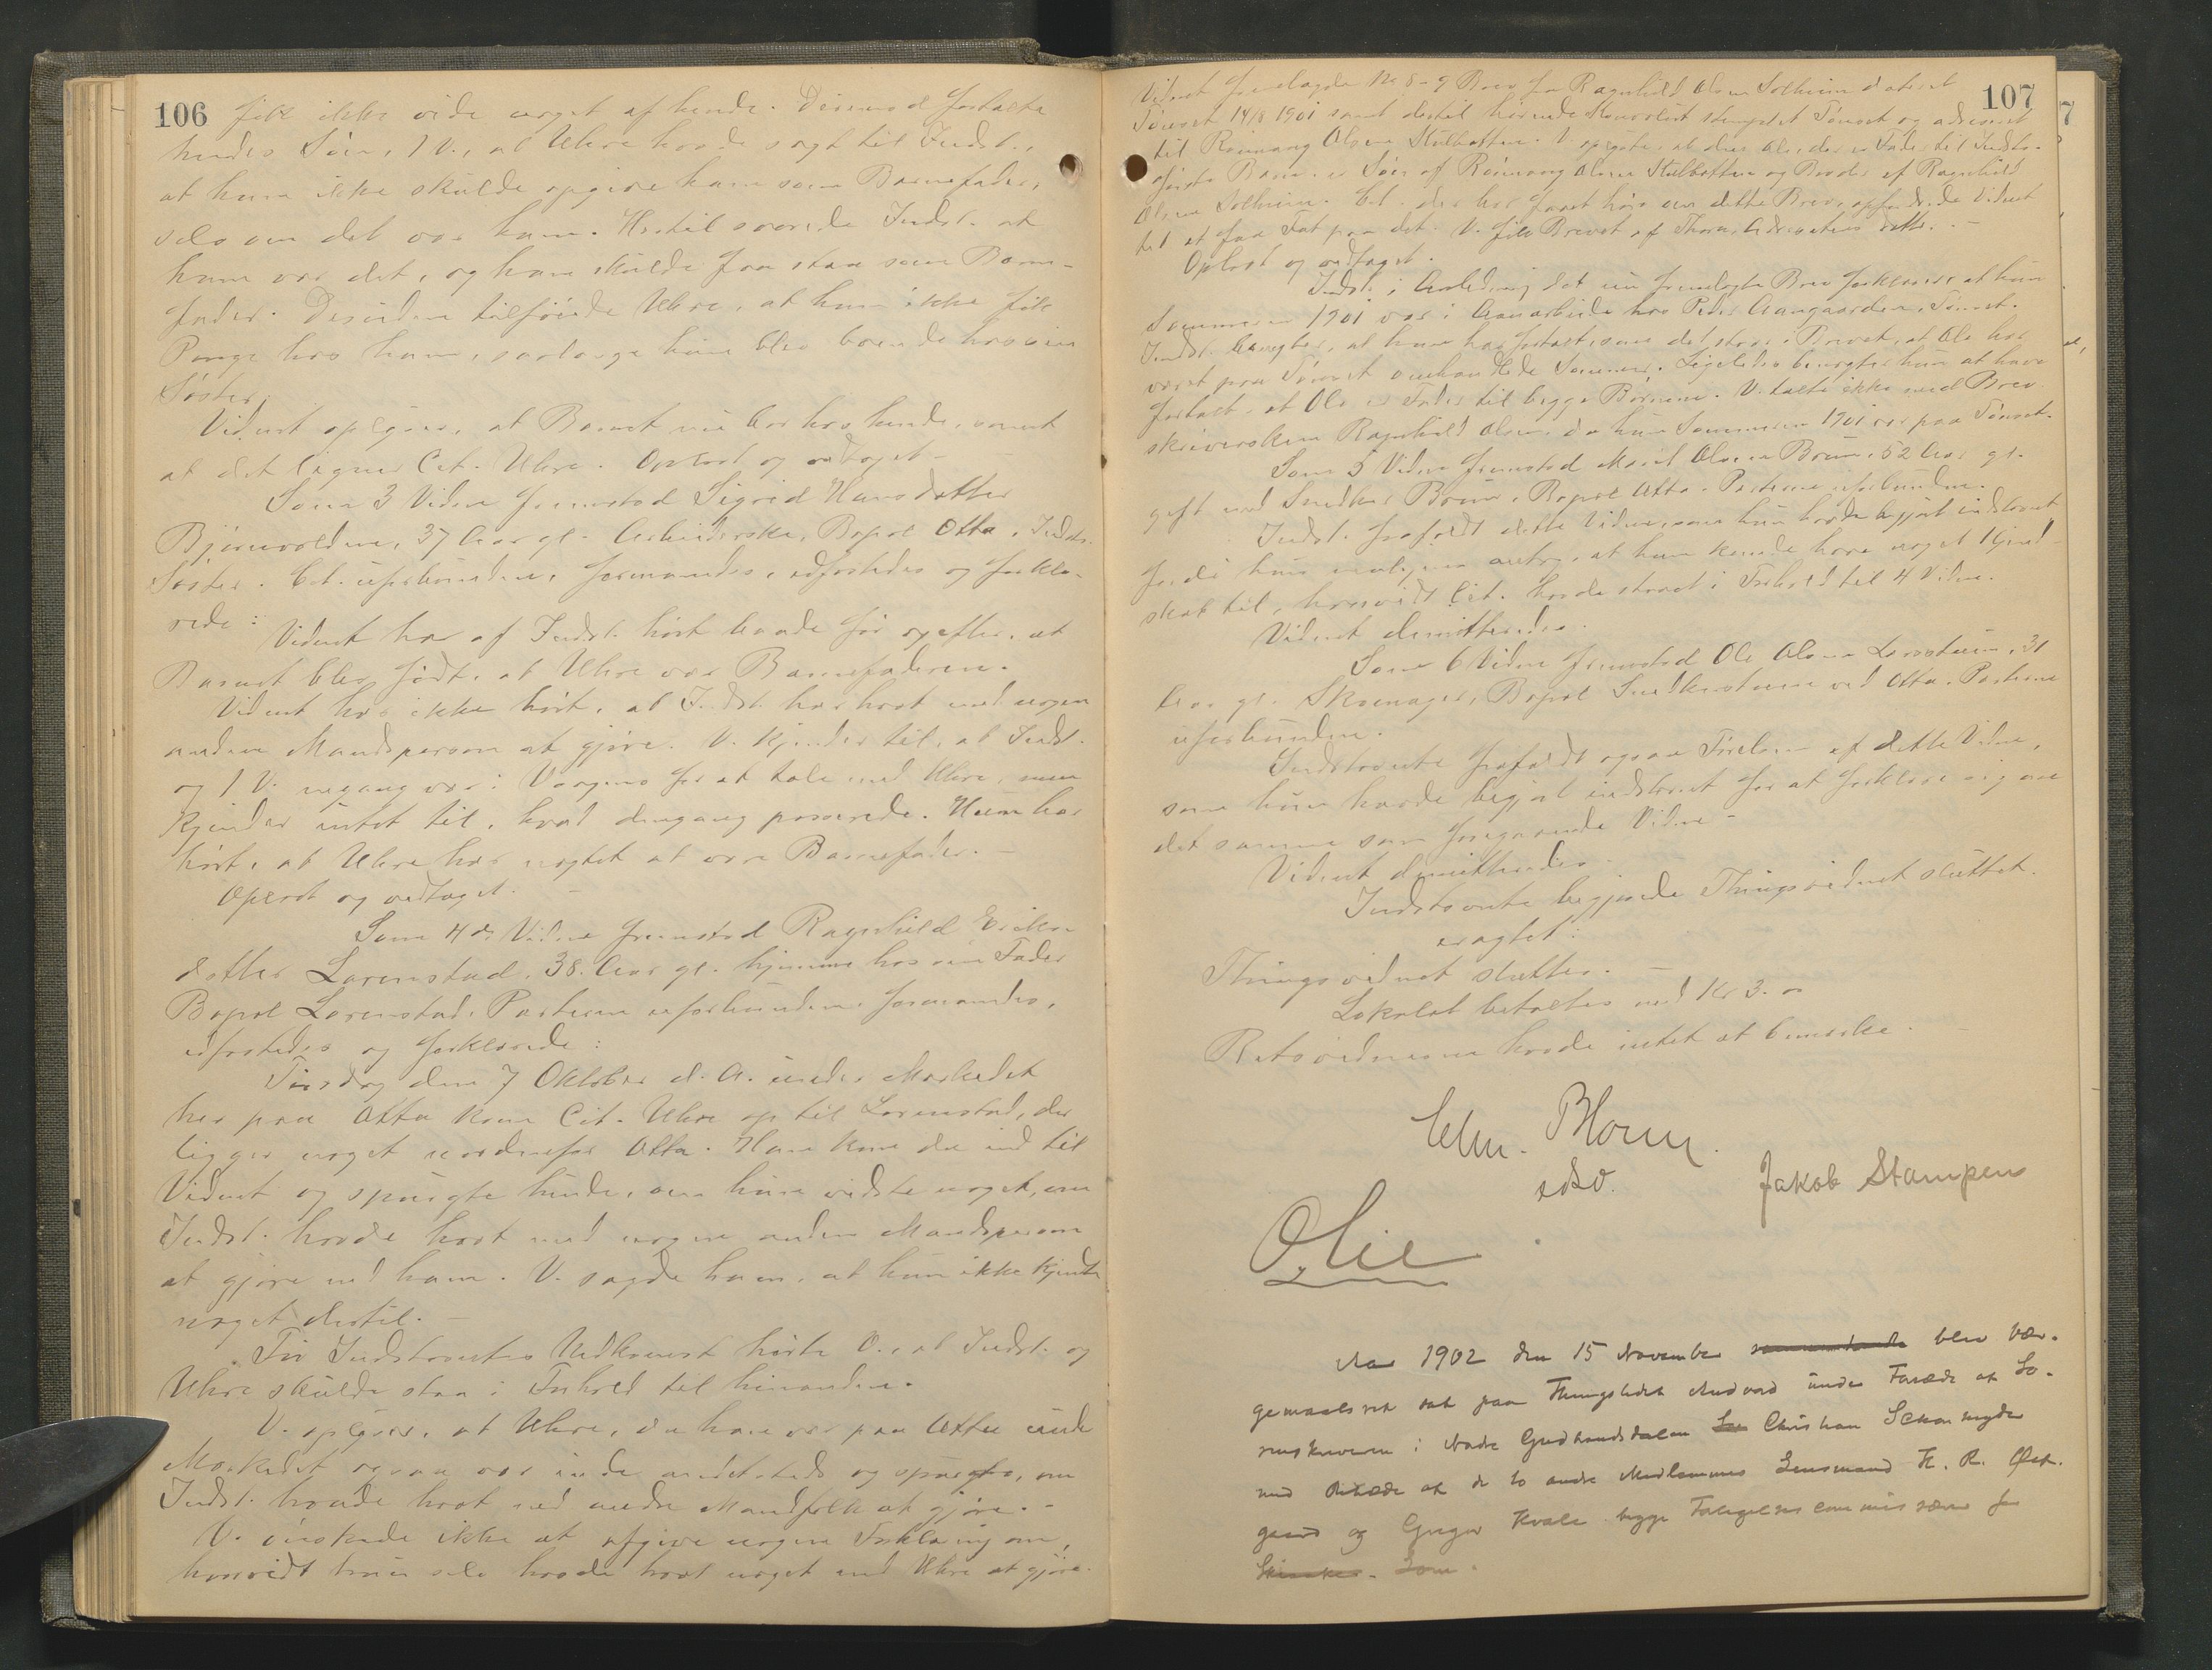 106
fik ikke vide noget af hende. Derimod fortalte
hendes Søn, 1 V., at Uhre havde sagt til Indst.,
at hun ikke skulde opgive ham som Barnefader,
selv om det var ham. Hertil svarede Indst. at
han var det, og han skulde faa staa som Barne-
fader. Desuden tilføiede Uhre, at hun ikke fik
Penge hos ham, saalænge hun blev boende hos sin
Søster.
Vidnet oplyser, at Barnet nu er hos hende, samt
at det ligner Cit. Uhre. Oplæst og vedtaget.
Som 3 Vidne fremstod Sigrid Hansdatter
Bjørnvolden, 37 Aar gl. Arbeiderske, Bopæl Otta, Indst.
Søster. Cit. uforbunden, formanedes, edfæstedes og forkla-
rede:
Vidnet har af Indst. hørt baade før og efter, at
Barnet blev født, at Uhre var Barnefaderen.
Vidnet har ikke hørt, at Indst. har havt med nogen
anden Mandsperson at gjøre. V. kjender til, at Indst.
og 1 V. engang var i Vaagaa for at tale med Uhre, men
kjender intet til, hvad dengang passerede. Hun har
hørt, at Uhre har negtet at være Barnefader. -
Oplæst og vedtaget. -
Som 4de Vidne fremstod Ragnhild Eriks-
datter Lorenstad, 38 Aar gl. hjemme hos sin Fader
Bopæl Lorenstad. Parterne uforbunden, formanedes,
edfæstedes og forklarede:
Tirsdag den 7 Oktober d. A. under Markedet
her paa Otta kom Cit. Uhre op til Lorenstad, der
ligger noget nordenfor Otta. Han kom da ind til
Vidnet og spurgte hende, om hun vidste noget, om
Indst. havde havt med nogen anden Mandsperson
at gjøre end ham. V. sagde ham, at hun ikke kjendte
noget dertil. -
Før Indstevntes Nedkomst hørte V., at Indst. og
Uhre skulde staa i Forhold til hinanden.
V. oplyser, at Uhre, da han var paa Otta under
Markedet ogsaa var inde andetsteds og spurgte, om
Indst. havde havt med andre Mandfolk at gjøre. -
V. ønskede ikke at afgive nogen Forklaring om,
hvorvidt hun selv havde havt noget med Uhre at gjøre.
107
Vidnet fremlagde No 8 - 9 Brev fra Ragnhild Olsen Solheim dateret
Tønset 14/8 1901 samt dertil hørende Konvolut stemplet Tønset og adresseret
til Rønnaug Olsen Stulbotten. V. oplyste, at den Ole, der er Fader til Indsts.
første Barn er Søn af Rønnaug Olsen Stulbotten og Broder af Ragnhild
Olsen Solheim. Cit. der har faaet høre om dette Brev, opfordrede Vidnet
til at faa Fat paa det. V. fik Brevet af datter. -
Oplæst og vedtaget.
Indst. i Anledning det nu fremlagte Brev forklarer, at hun
Sommeren 1901 var i Aanarbeide hos Peder Aangaarden, Tønset.
Indst. benegter, at hun har fortalt, som det staar i Brevet, at Ole har
været paa Tønset omhandlede Sommer. Ligeledes benegter hun at have
fortalt, at Ole er Fader til begge Børnene. V. talte ikke med Brev-
skriversken Ragnhild Olsen da hun Sommeren 1901 var paa Tønset.
Som 5 Vidne fremstod Marit Olsen Bruun, 52 Aar gl.
gift med Snedker Bruun, Bopæl Otta. Parterne uforbunden.
Indst. frafaldt dette Vidne, som hun havde begjært indstevnt
fordi hun antog, at hun kunde have noget Kjend-
skab til, hvorvidt Cit. havde staaet i Forhold til 4 Vidne.
Vidnet dimitteredes.
Som 6 Vidne fremstod Ole Olsen Larsstuen, 31
Aar gl. Skomager, Bopæl Snedkerstuen ved Otta. Parterne
uforbunden.
Indstevnte frafaldt ogsaa Førelsen af dette Vidne,
som hun havde begjært indstevnt for at forklare sig om
det samme som foregaaende Vidne -
Vidnet dimitteredes.
Indstevnte begjærede Thingsvidnet sluttet.
eragtet:
Thingsvidnet sluttes. -
Lokalet betaltes med Kr 3.00
Retsvidnerne havde intet at bemærke.
Chr. Blom.
edsv.
Jakob Stampen
OLie
Aar 1902 den 15 November blev Vær-
gemaalsret sat paa Thingstedet Nedvord under Forsæde af So-
renskriveren i Nordre Gudbrandsdalen Christian Schavnyder
med Bisæde af de to andre Medlemmer Lensmand H. R. Øst-
gaard og Gregor Kvale begge Forligelsescommissærer for
Som